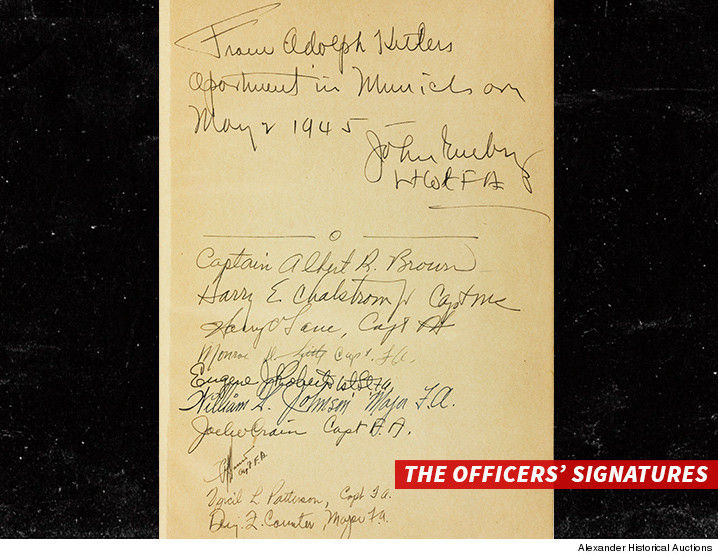 From Adolph Hitlers
apartment in Munich on
May 2 1945 —
John
Lt Col F A
Captain Albert R. Brown
Harry E Chalstrom Jr Capt MC
Capt
Monroe Capt. F.A.
Eugene J Roberts 1st Lt FA
William L. Johnson Major F.A.
Joel Crain Capt F.A.
Capt F.A.
Virgil L Patterson, Capt F.A.
Benj. F. Counter, Major F.A.
THE OFFICERS' SIGNATURES
Alexander Historical Auctions